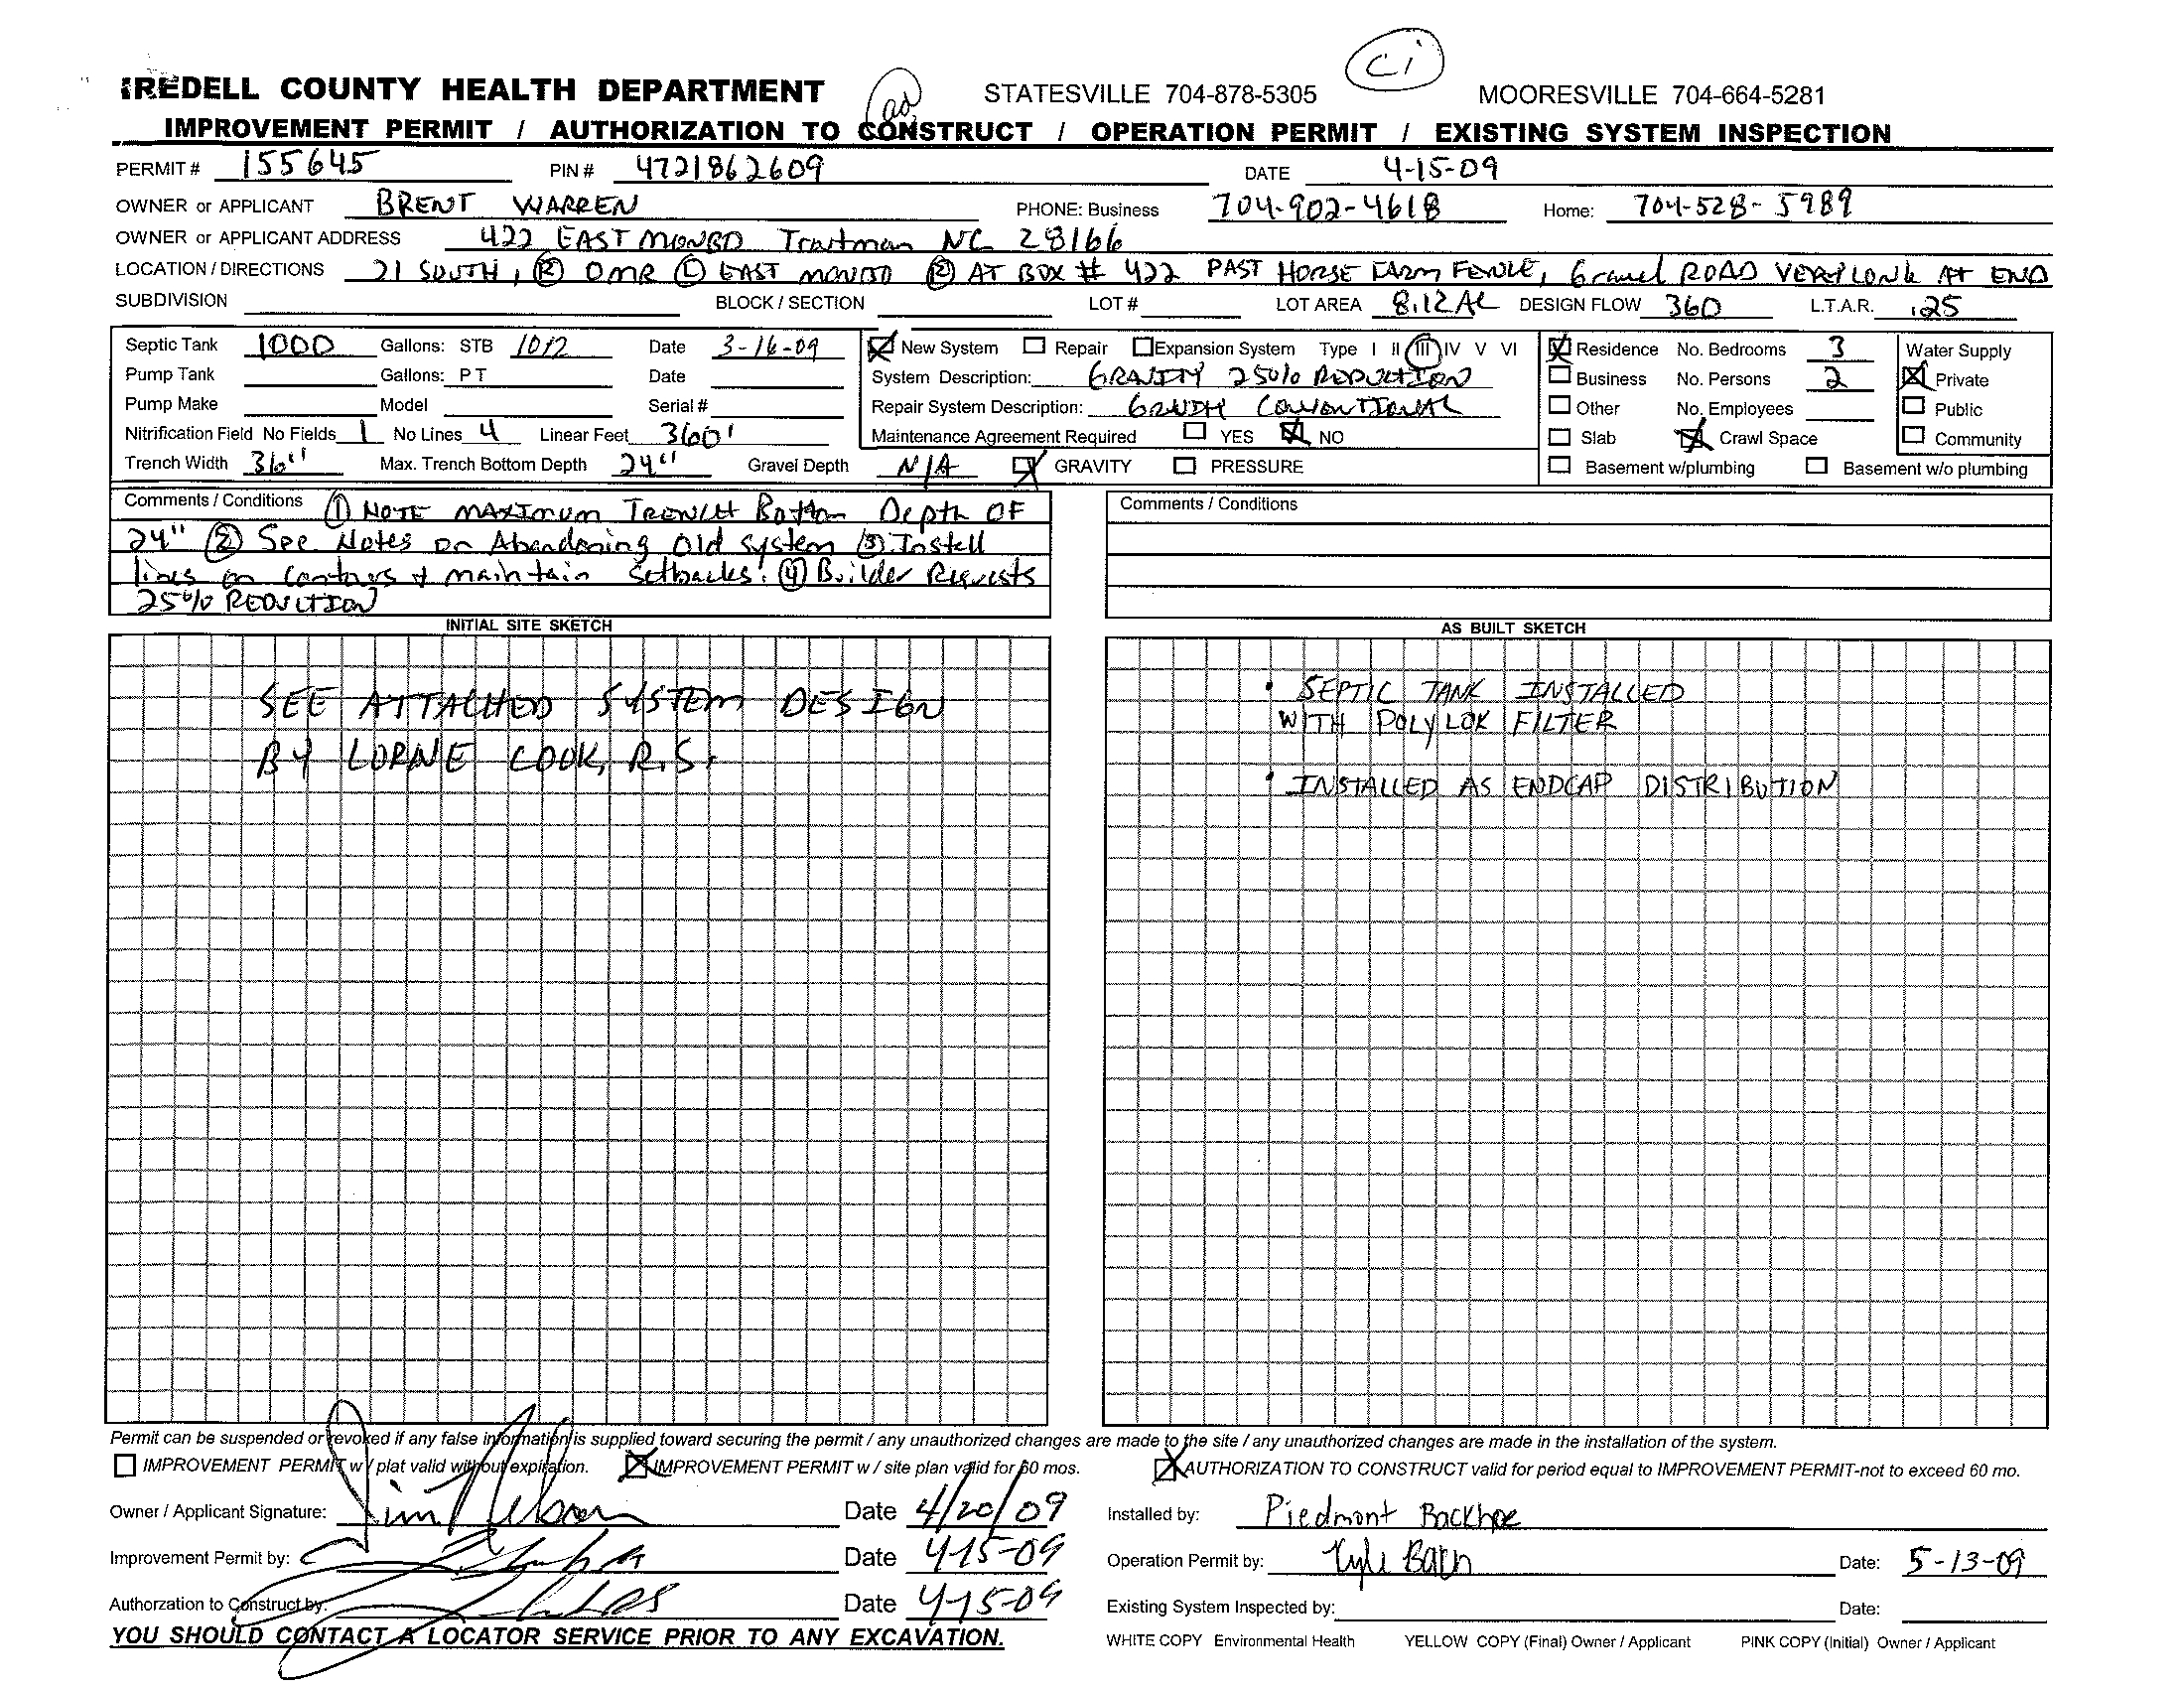 ci
IREDELL COUNTY HEALTH DEPARTMENT ad STATESVILLE 704-878-5305 MOORESVILLE 704-664-5281
IMPROVEMENT PERMIT / AUTHORIZATION TO CONSTRUCT / OPERATION PERMIT / EXISTING SYSTEM INSPECTION
PERMIT # 155645 PIN # 4721862609 DATE 4-15-09
OWNER or APPLICANT BRENT WARREN PHONE: Business 704-902-4618 Home: 704-528-5989
OWNER or APPLICANT ADDRESS 422 EAST MONBO Troutman NC 28166
LOCATION / DIRECTIONS 21 SOUTH, (R) OMR (L) EAST MONBO (R) AT BOX # 422 PAST HORSE FARM FENCE, Gravel ROAD VERY LONG AT END
SUBDIVISION BLOCK / SECTION LOT # LOT AREA 8.12 AC DESIGN FLOW 360 L.T.A.R. .25
Septic Tank 1000 Gallons: STB 1012 Date 3-16-09 New System Repair Expansion System Type I II III IV V VI Residence No. Bedrooms 3 Water Supply
Pump Tank Gallons: PT Date System Description: GRAVITY 25% REDUCTION Business No. Persons 2 Private
Pump Make Model Serial # Repair System Description: GRAVITY CONVENTIONAL Other No. Employees Public
Nitrification Field No Fields 1 No Lines 4 Linear Feet 360' Maintenance Agreement Required YES NO Slab Crawl Space Community
Trench Width 36" Max. Trench Bottom Depth 24" Gravel Depth N/A GRAVITY PRESSURE Basement w/plumbing Basement w/o plumbing
Comments / Conditions (1) NOTE MAXIMUM TRENCH Bottom Depth OF
24" (2) See Notes on Abandoning Old system (3) Install
lines on contours & maintain setbacks! (4) Builder Requests
25% REDUCTION
Comments / Conditions
INITIAL SITE SKETCH
SEE ATTACHED SYSTEM DESIGN
BY LORNE COOK, R.S.
AS BUILT SKETCH
• SEPTIC TANK INSTALLED
WITH POLYLOK FILTER
• INSTALLED AS ENDCAP DISTRIBUTION
Permit can be suspended or revoked if any false information is supplied toward securing the permit / any unauthorized changes are made to the site / any unauthorized changes are made in the installation of the system.
IMPROVEMENT PERMIT w / plat valid without expiration. IMPROVEMENT PERMIT w / site plan valid for 60 mos. AUTHORIZATION TO CONSTRUCT valid for period equal to IMPROVEMENT PERMIT-not to exceed 60 mo.
Owner / Applicant Signature: Date 4/20/09 Installed by: Piedmont Backhoe
Improvement Permit by: Date 4-15-09 Operation Permit by: Kyle Date: 5-13-09
Authorzation to Construct by: Date 4-15-09 Existing System Inspected by: Date:
YOU SHOULD CONTACT A LOCATOR SERVICE PRIOR TO ANY EXCAVATION. WHITE COPY Environmental Health YELLOW COPY (Final) Owner / Applicant PINK COPY (Initial) Owner / Applicant